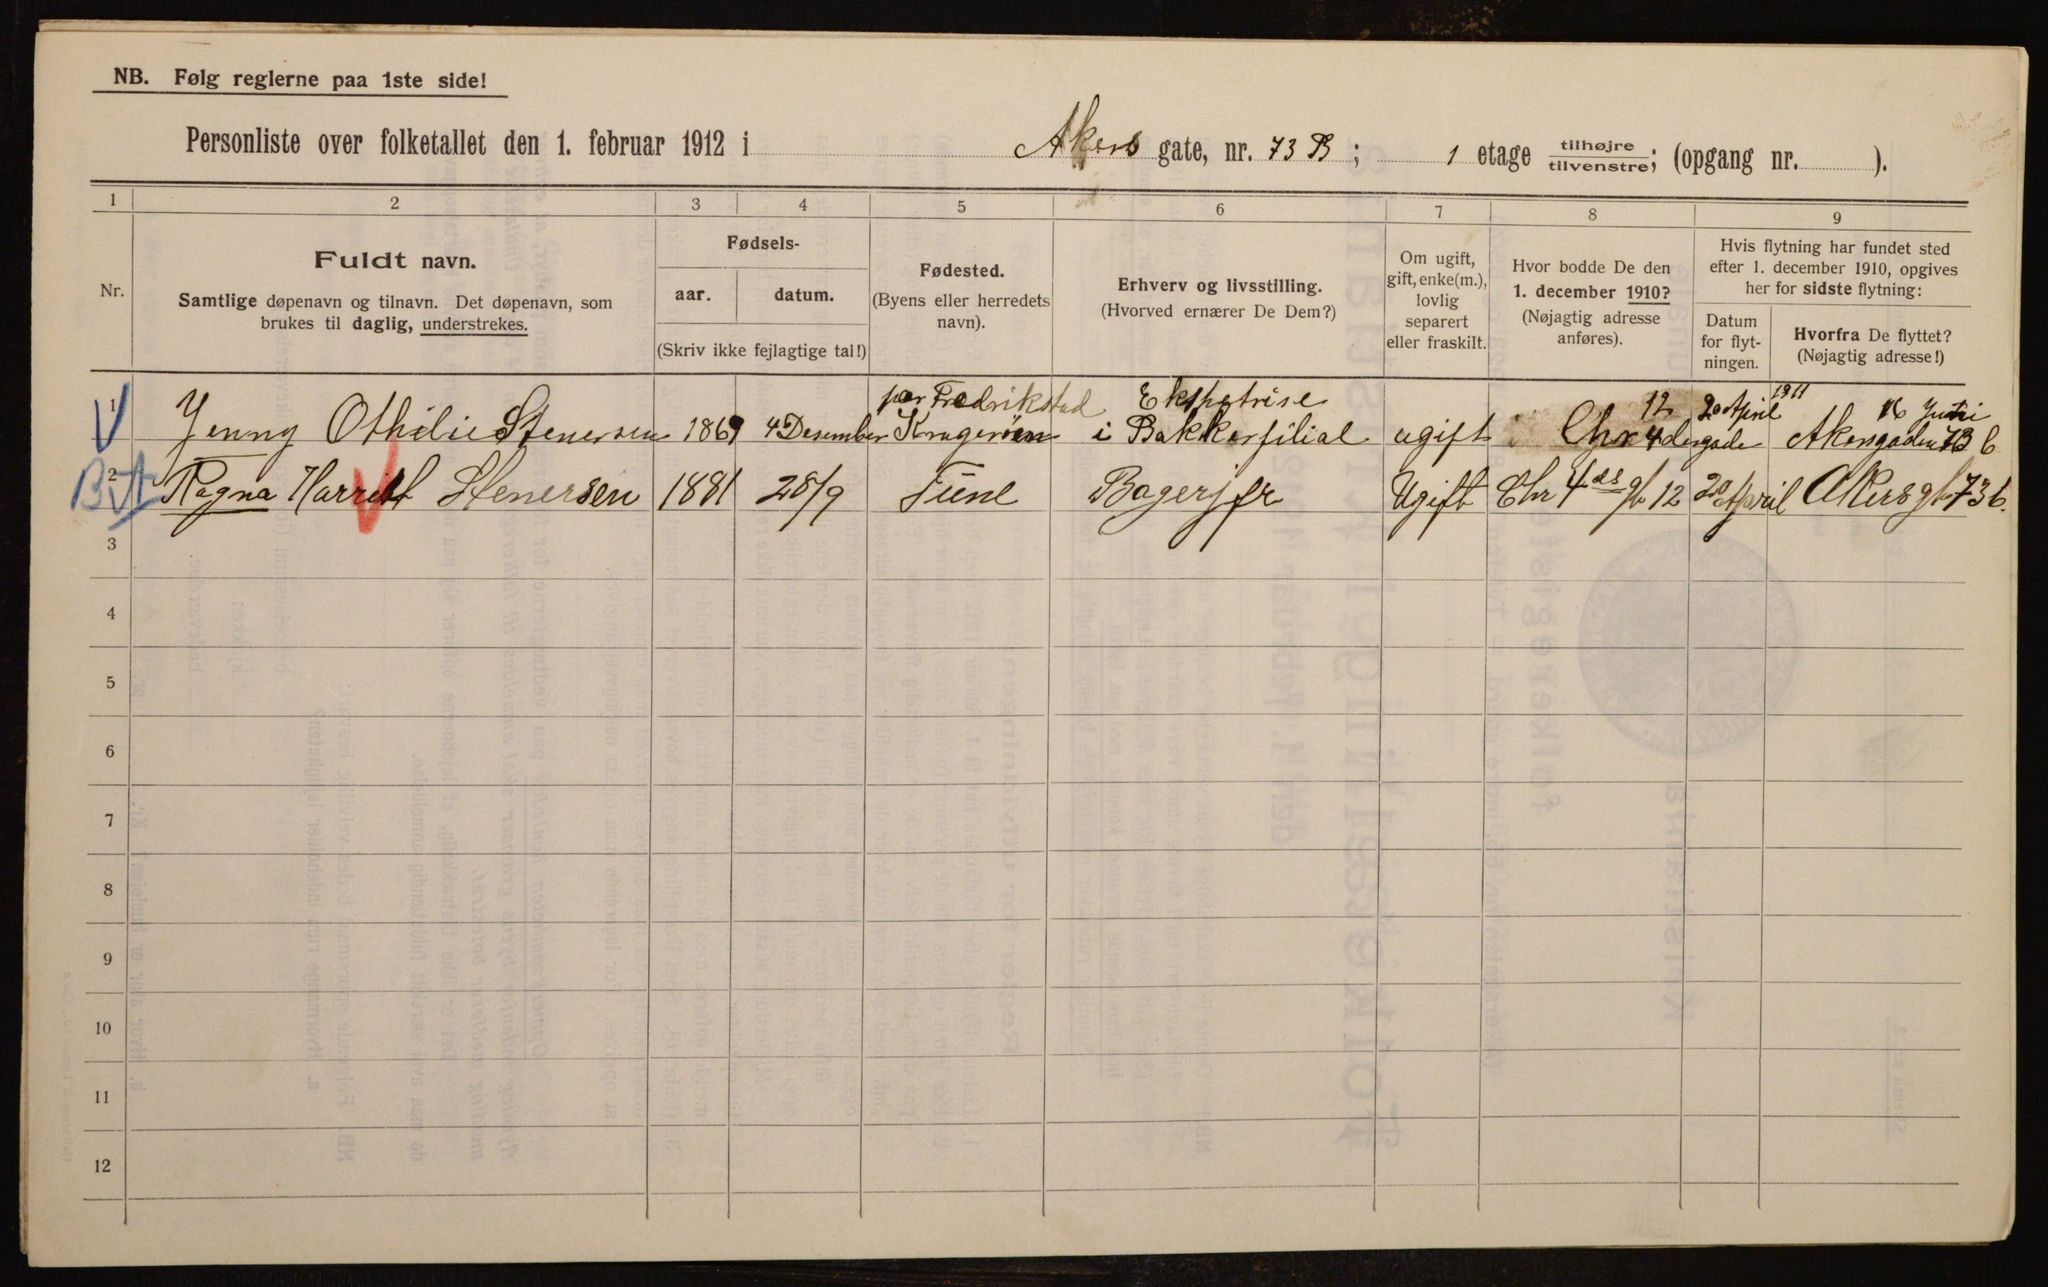 NB. Følg reglerne paa 1ste side!
Personliste over folketallet den 1. februar 1912 i Akers gate, nr. 73 B; 1 etage tilhøjre/tilvenstre; (opgang nr. ).
1 2 3 4 5 6 7 8 9
Nr.
Fuldt navn.
Samtlige døpenavn og tilnavn. Det døpenavn, som
brukes til daglig, understrekes.
Fødsels-
aar. datum.
(Skriv ikke fejlagtige tal!)
Fødested.
(Byens eller herredets
navn).
Erhverv og livsstilling.
(Hvorved ernærer De Dem?)
Om ugift,
gift, enke(m.),
lovlig
separert
eller fraskilt.
Hvor bodde De den
1. december 1910?
(Nøjagtig adresse
anføres).
Hvis flytning har fundet sted
efter 1. december 1910, opgives
her for sidste flytning:
Datum
for flyt-
ningen.
Hvorfra De flyttet?
(Nøjagtig adresse!)
pr Fredrikstad Ekspetrise 12 20 April 1911 16
1 Jenny Othilie Stenersen 1869 4 Desember Kragerøen i Bakkerfilial ugift Chr 4des gade Akersgaden 73 b
2 Ragna Harriet Stenersen 1881 28/9 Tune Bagerjfr Ugift Chr 4des gt 12 20 April Akersgt 73 b.
3
4
5
6
7
8
9
10
11
12